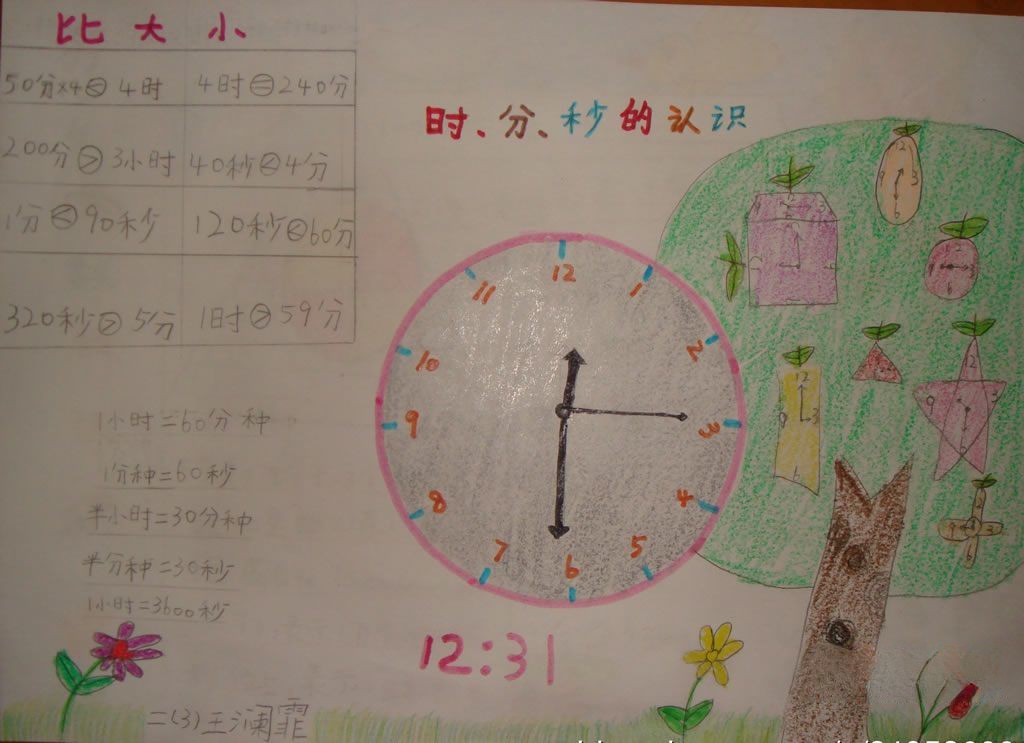 比大小
50分×4<4时 4时=240分
200分>3小时 40秒<4分
1分<90秒 120秒<60分
320秒>5分 1时>59分
时、分、秒的认识
1小时=60分种
1分种=60秒
半小时=30分种
半分种=30秒
1小时=3600秒
12
1
2
3
4
5
6
7
8
9
10
11
12:31
12
3
6
12
3
6
12
3
6
9
12
3
9
二(3)王澜霏